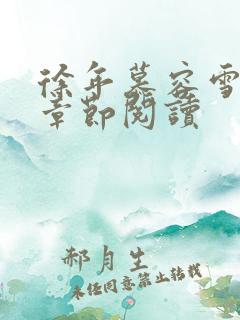 徐年慕容雪
章節閱讀
郝月生
未经同意禁止转载